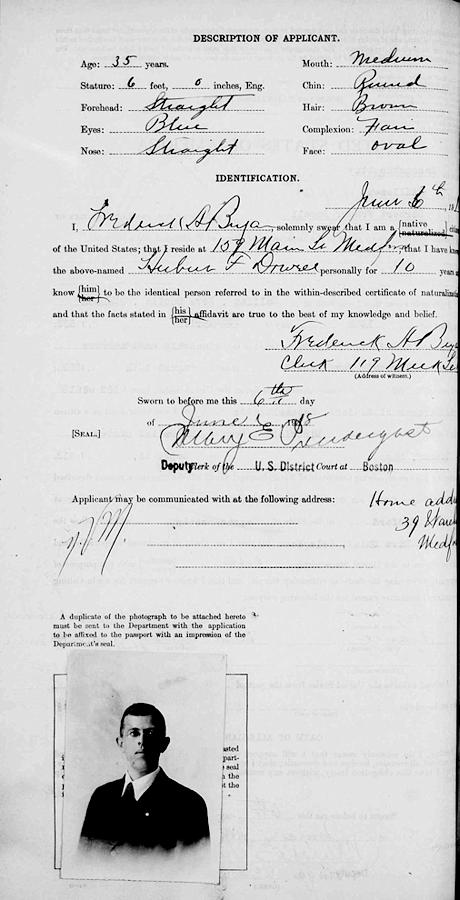 DESCRIPTION OF APPLICANT.
Age: 35 years.
Mouth: Medium
Stature: 6 feet, 0 inches, Eng.
Chin: Round
Forehead: Straight
Hair: Brown
Eyes: Blue
Complexion: Fair
Nose: Straight
Face: oval
IDENTIFICATION.
June 6th 191
I, Frederick A solemnly swear that I am a {native naturalized}
of the United States; that I reside at 159 Main St Medford that I have
the above-named personally for 10 years
know {him her} to be the identical person referred to in the within-described certificate of
and that the facts stated in {his her} affidavit are true to the best of my knowledge and belief.
Frederick A
Clerk 119 St
(Address of witness.)
Sworn to before me this 6th day
of June
[SEAL.] Mary E Prendergast
Deputy Clerk of the U. S. District Court at Boston
Applicant may be communicated with at the following address:
Home
39
A duplicate of the photograph to be attached hereto
must be sent to the Department with the application
to be affixed to the passport with an impression of the
Department's seal.